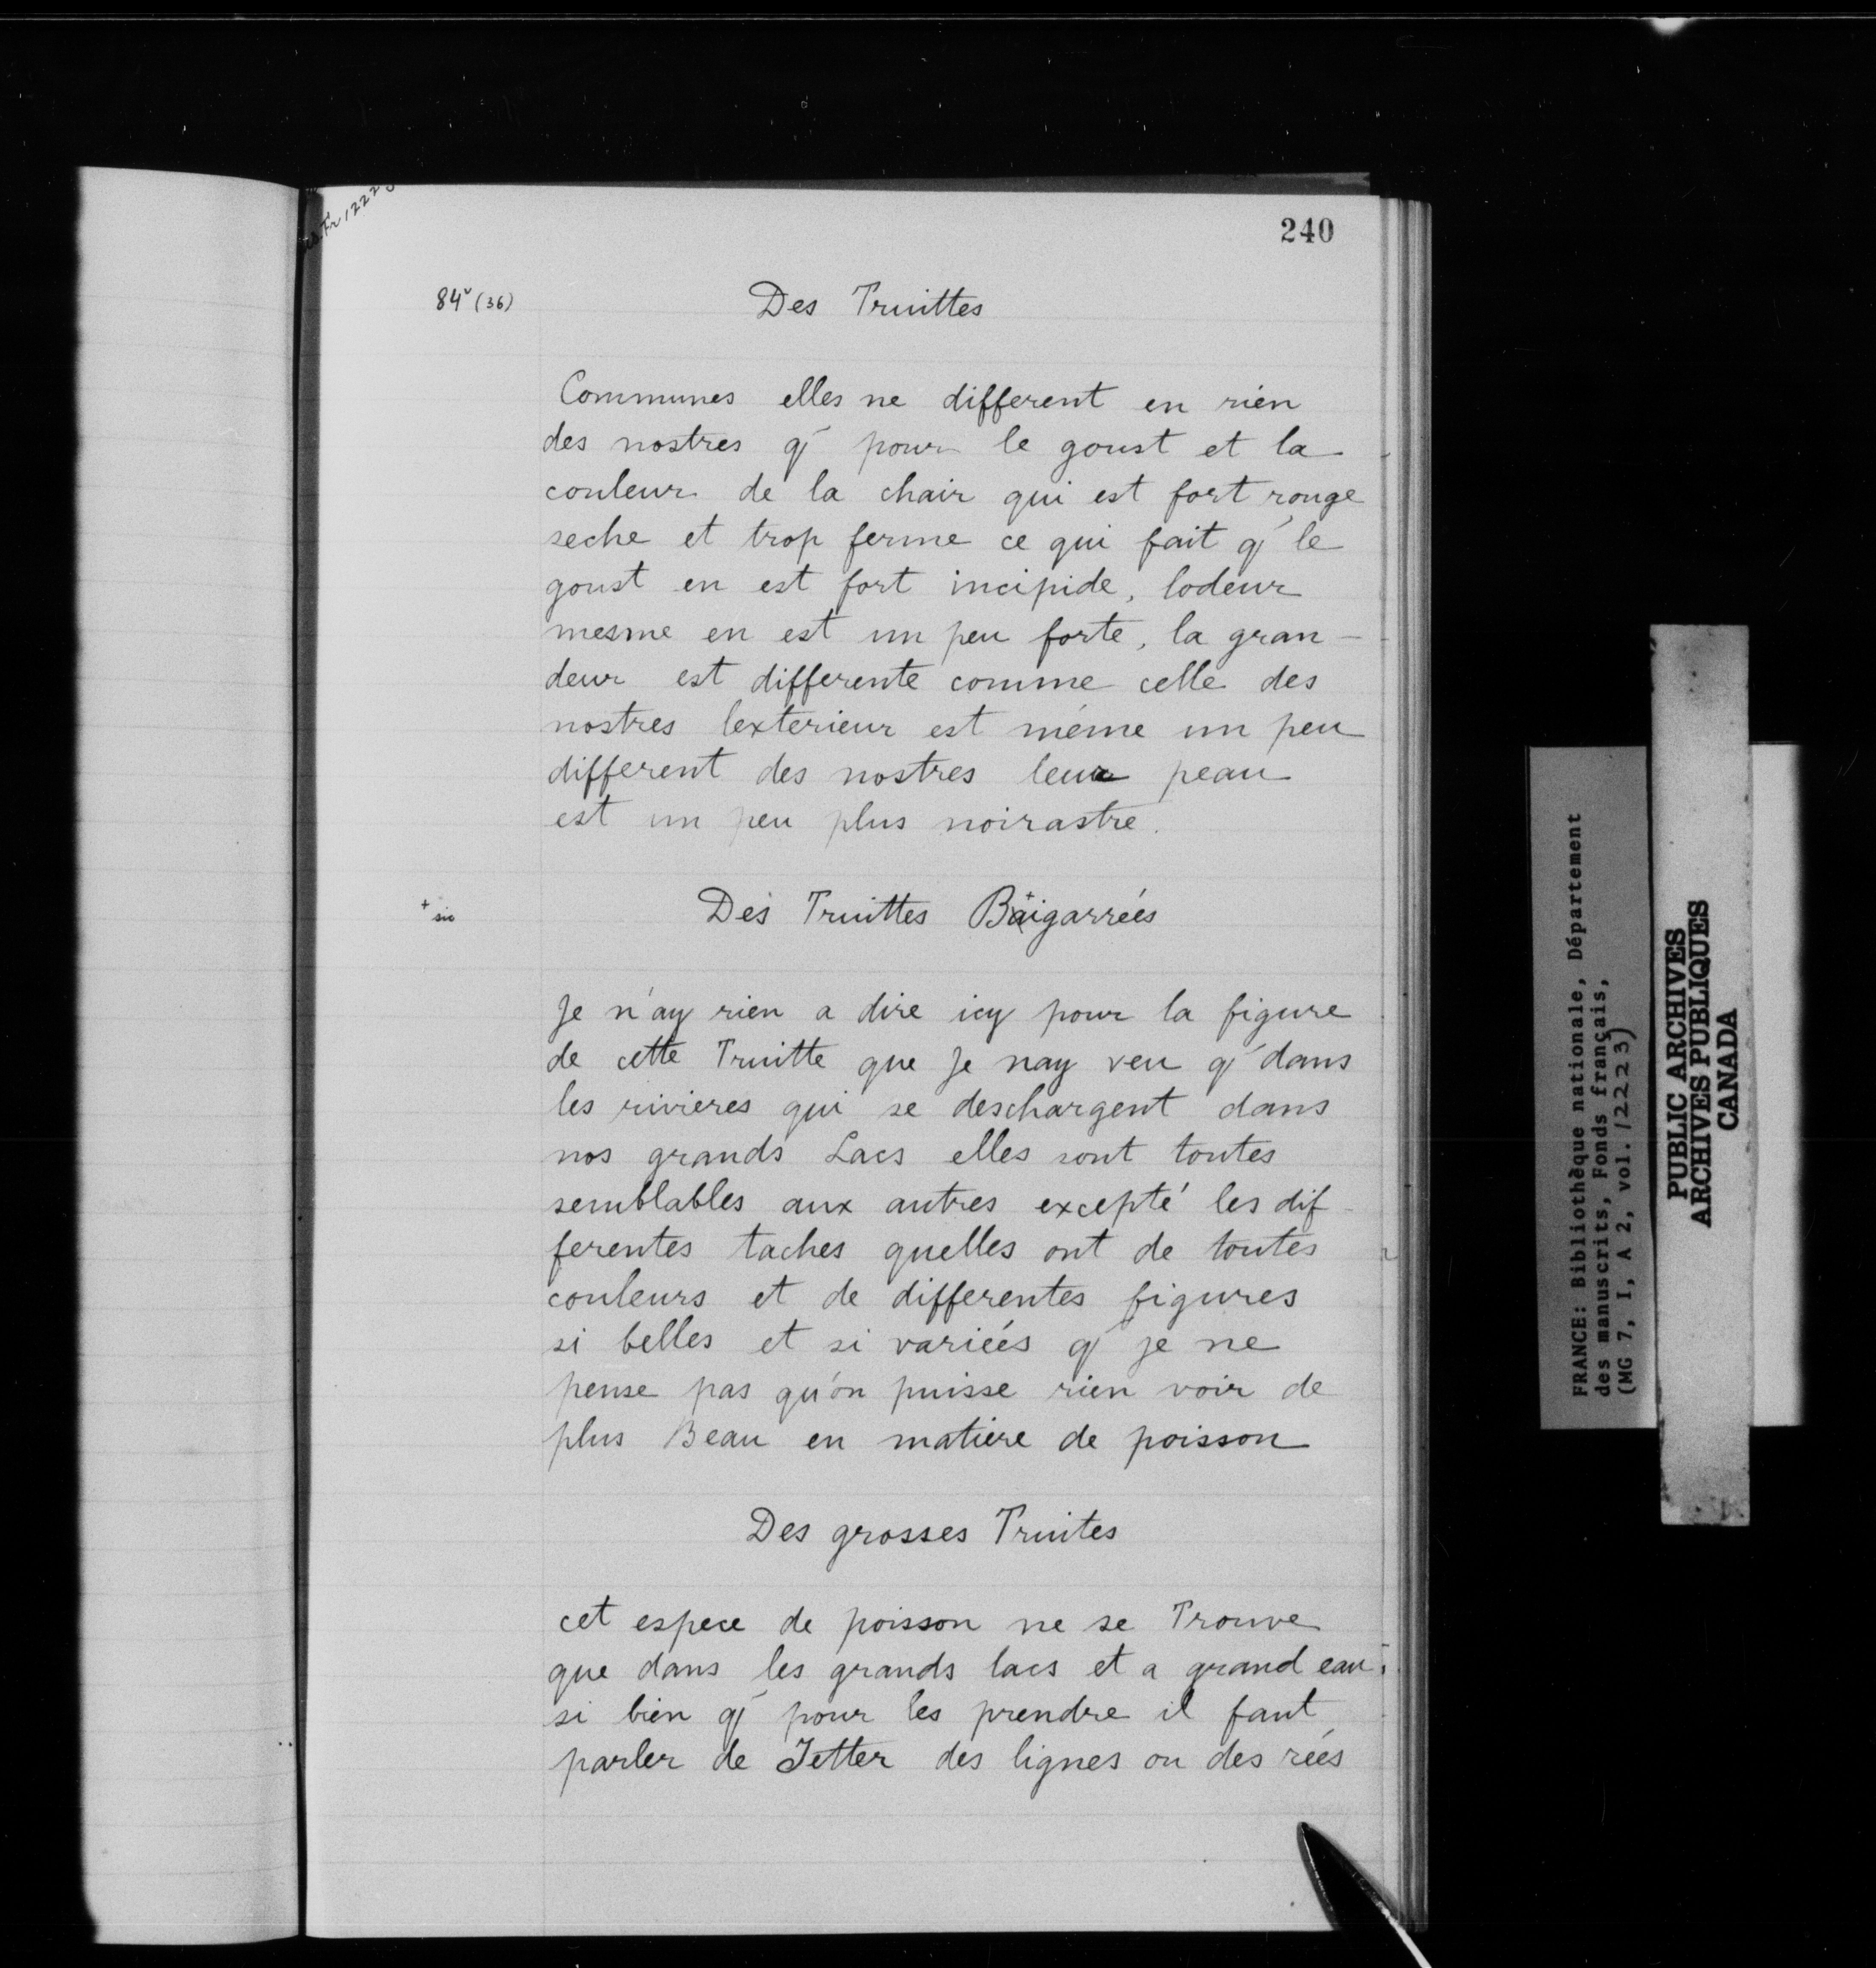 240
84ᵛ (36)
Des Truittes
Communes elles ne different en rien
des nostres q̃ pour le goust et la
couleur de la chair qui est fort rouge
seche et trop ferme ce qui fait q̃ le
goust en est fort incipide, lodeur
mesme en est un peu forte, la gran-
deur est differente comme celle des
nostres lexterieur est méme un peu
different des nostres leur peau
est un peu plus noirastre.
+ sic
Des Truittes Baigarreés
Je n'ay rien a dire icy pour la figure
de cette Truitte que Je nay veu q̃ dans
les rivieres qui se deschargent dans
nos grands Lacs elles sont toutes
semblables aux autres excepté les dif-
ferentes taches quelles ont de toutes
couleurs et de differentes figures
si belles et si varieés q̃ je ne
pense pas qu'on puisse rien voir de
plus Beau en matiere de poisson
Des grosses Truites
cet espece de poisson ne se Trouve
que dans les grands lacs et a grand eau,
si bien q̃ pour les prendre il faut
parler de Jetter des lignes ou des reés
FRANCE: Bibliothèque nationale, Département
des manuscrits, Fonds français,
(MG 7, I, A 2, vol. 12223)
PUBLIC ARCHIVES
ARCHIVES PUBLIQUES
CANADA